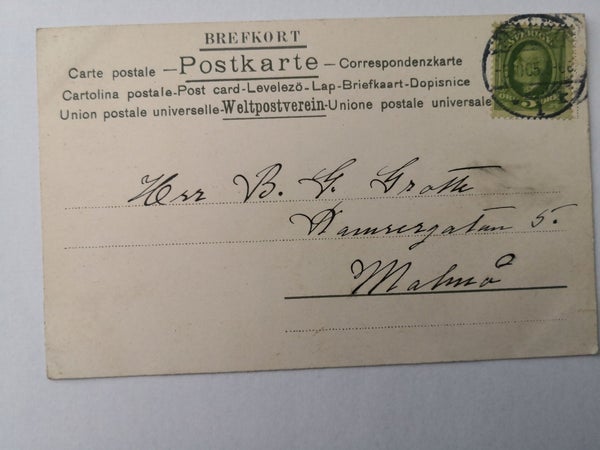 BREFKORT
Carte postale — Postkarte — Correspondenzkarte
Cartolina postale-Post card-Levelező-Lap-Briefkaart-Dopisnice
Union postale universelle-Weltpostverein-Unione postale universale
SVERIGE
ÖRE 5
Herr B. G. Grotte
Kamrergatan 5.
Malmö